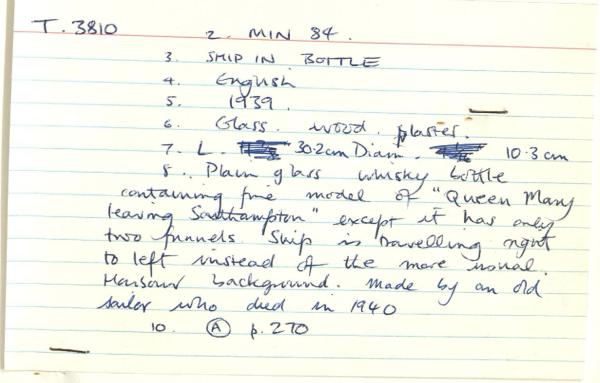 T. 3810 2. MIN 84.
3. SHIP IN BOTTLE
4. English
5. 1939.
6. Glass. wood. plaster.
7. L. 30.2cm Diam. 10.3 cm
8. Plain glass whisky bottle
containing fine model of "Queen Mary
leaving Southampton" except it has only
two funnels. Ship is travelling right
to left instead of the more usual.
Harbour background. Made by an old
sailor who died in 1940
10. A p. 270